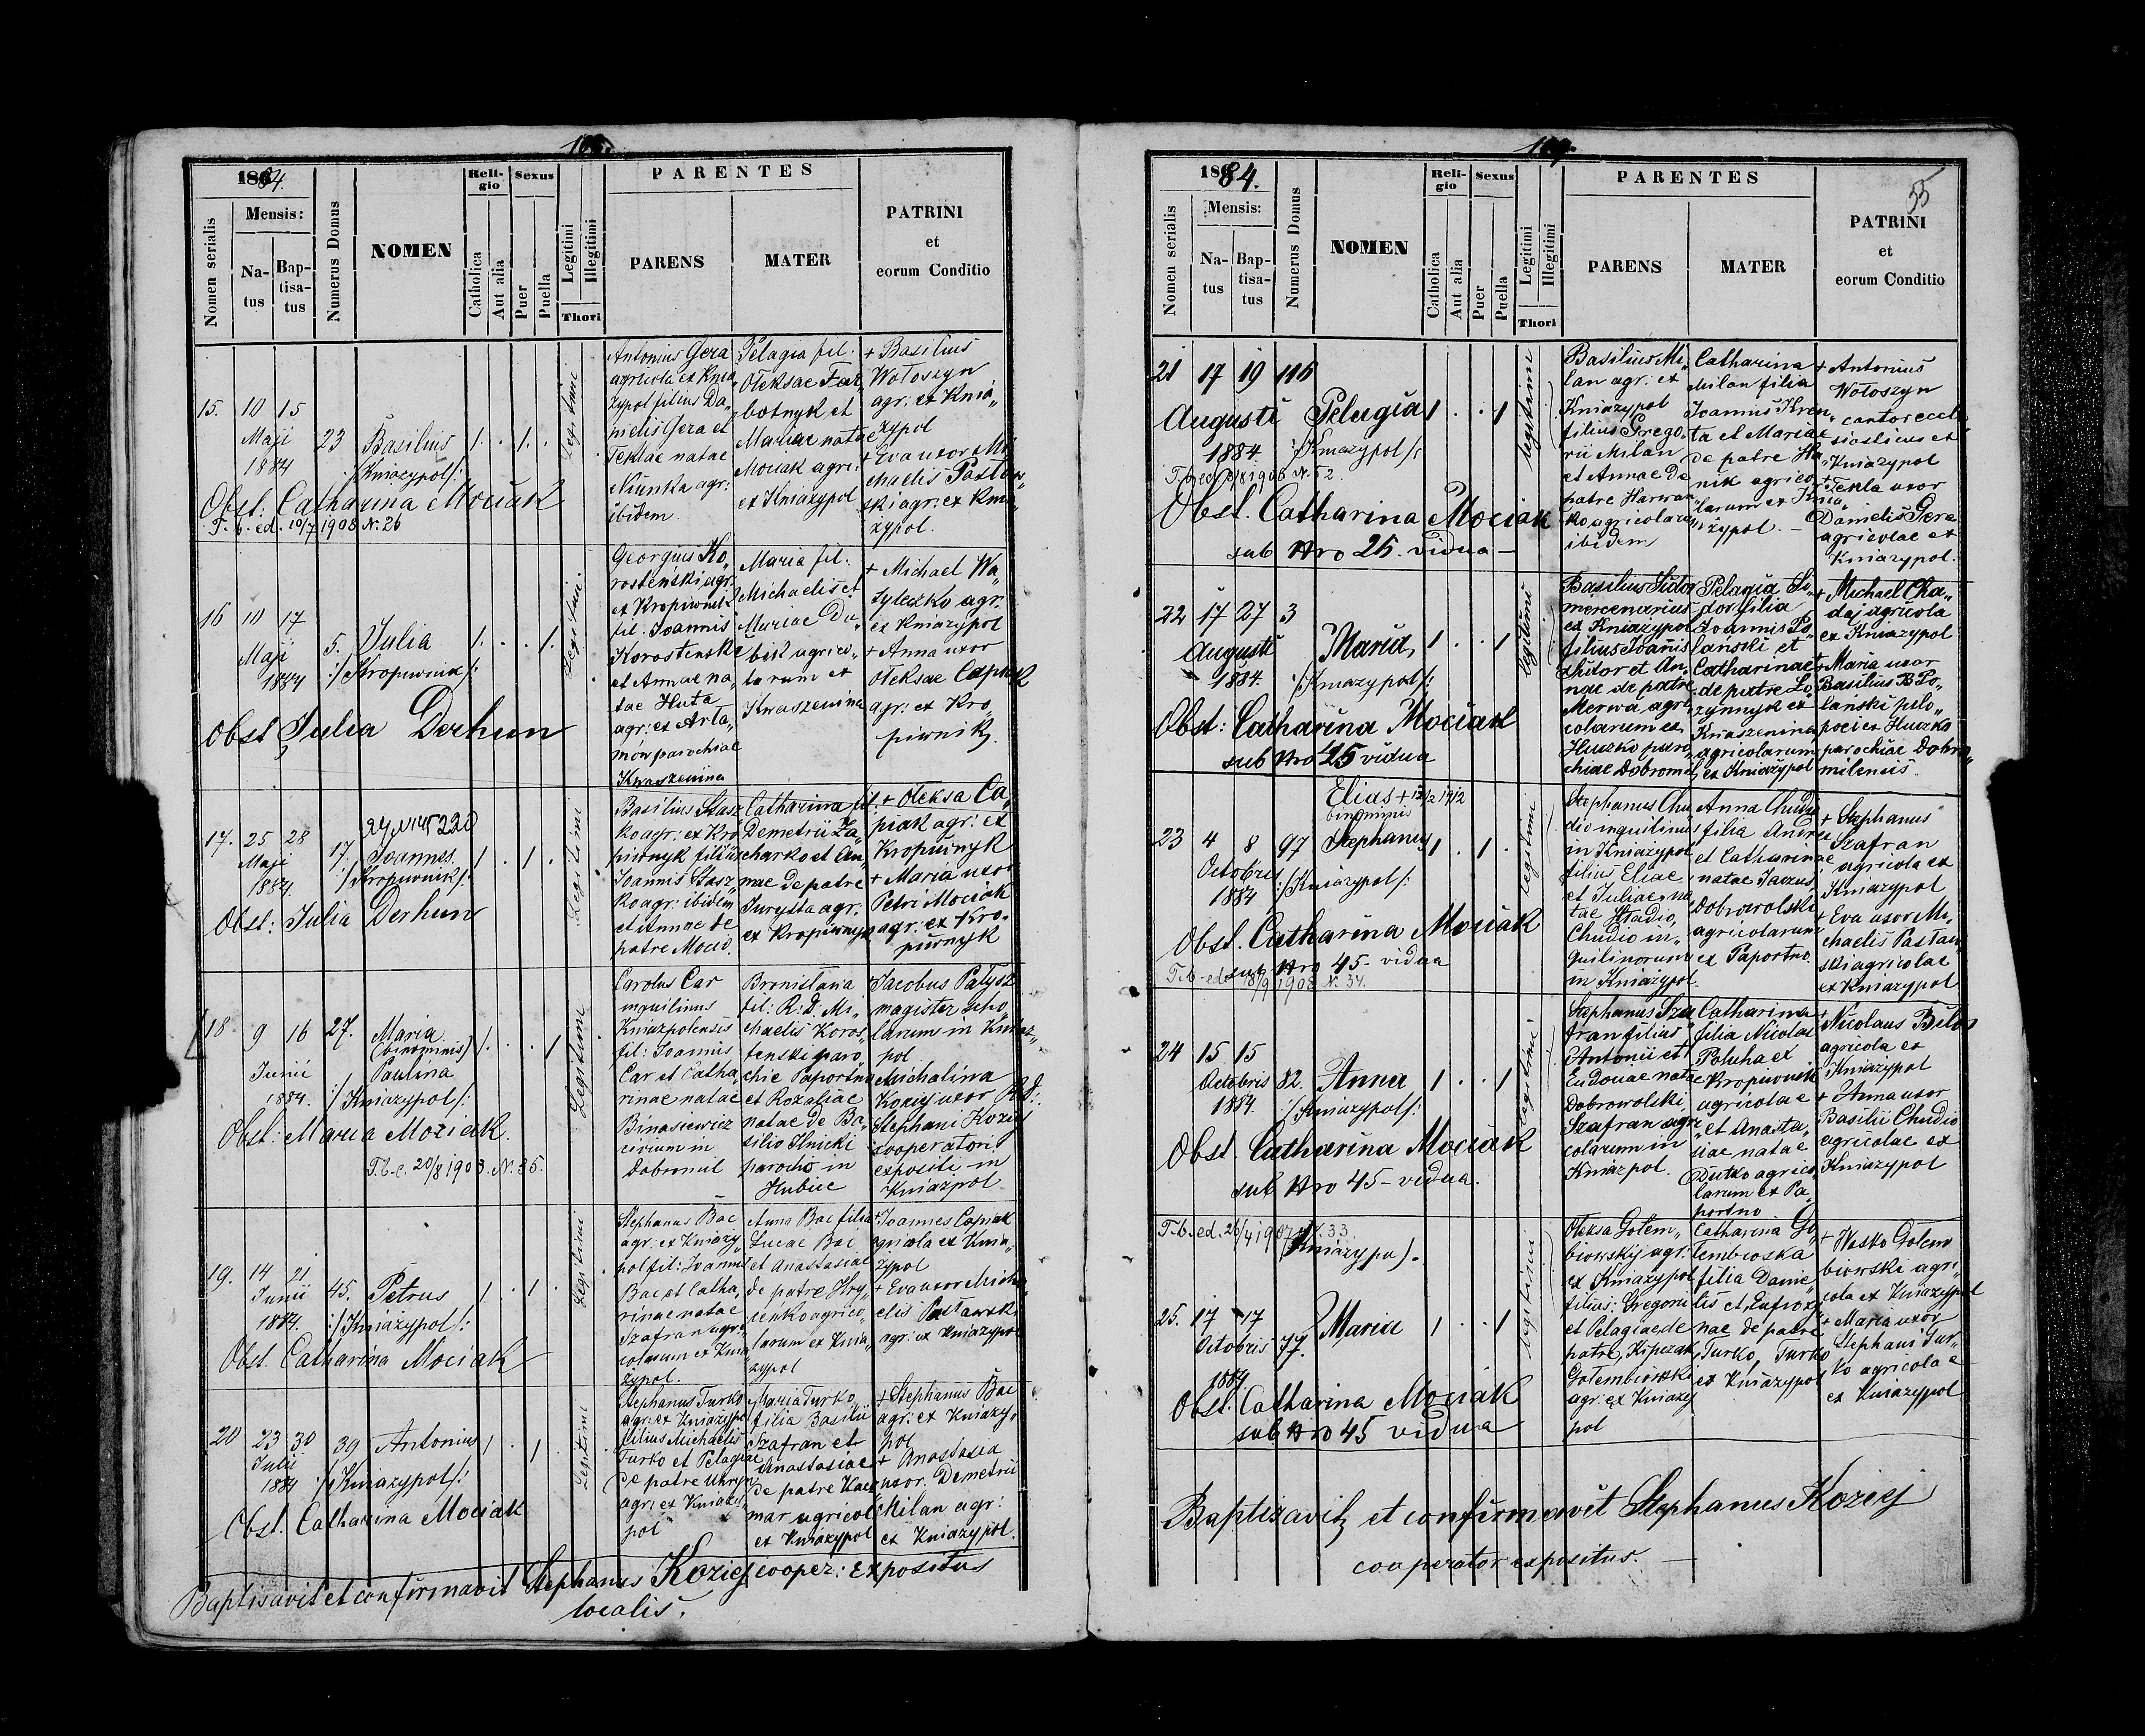 108.
1884.
Nomen serialis
Mensis:
Natus
Baptisatus
Numerus Domus
NOMEN
Religio
Catholica
Aut alia
Sexus
Puer
Puella
Legitimi
Illegitimi
Thori
PARENTES
PARENS
MATER
PATRINI
et
eorum Conditio
15. 10 15
Maji
1884
23
Basilius
/:Kniazypol/:
1 . 1 .
Legitimi
Antonius Gera
agricola ex Knia„
zypol filius Da„
nielis Gera et
Teklae natae
Niunka agr:
ibidem.
Pelagia fil.
Oleksae Far„
botnyk et
Mariae natae
Mociak agri.
ex Kniazypol
+ Basilius
Wołoszyn
agr: ex Knia„
zypol
+ Eva uxor Mi„
chaelis Pastaw„
ski agr: ex Knia„
zypol.
Obst: Catharina Mociak
T. b. ed. 10/7 1908 N. 26
16 10 17
Maji
1884
5.
Julia
:/Kropiwnik/:
1 . . 1
Legitimi
Georgius Ko„
rosteński agr:
ex Kropiwnik
fil. Joannis
Korostenski
et Annae na„
tae Huta
agr: ex Arta„
mów parochiae
Kwaszenina
Maria fil.
Michaelis et
Mariae Du„
bik agrico„
larum ex
Kwaszenina
+ Michael Wa„
syleczko agr.
ex Kniazypol
+ Anna uxor
Oleksae Capiak
agr: ex Kro„
piwnik.
Obst Julia Derhun
17. 25 28
Maji
1884.
17.
Joannes.
:/Kropiwnik/:
1 . 1 .
Legitimi
Basilius Stasz„
ko agr: ex Kro„
piwnyk filius
Joannis Stasz„
ko agr: ibidem
et Annae de
patre Mocio.
Catharina fil.
Demetrii Za„
charko et An„
nae de patre
Jurysta agr.
ex Kropiwnyk
+ Oleksa Ca„
piak agr: ex
Kropiwnyk
+ Maria uxor
Petri Mociak
agr: ex Kro„
piwnyk
Obst: Julia Derhun
18 9 16
Junii
1884.
27.
Maria
(binominis)
Paulina
:/Kniazypol/:
1 . . 1
Legitimi
Carolus Car
inquilinus
Kniazpolensis
fil: Joannis
Car et Catha„
rinae natae
Binasiewicz
civium in
Dobromil
Bronislawa
fil: R: D: Mi„
chaelis Koros„
tenski paro„
chi Paportno
et Rozaliae
natae de Ba„
silio Ilnicki
parocho in
Hubice
Jacobus Patysz
magister scho„
larum in Kniaz„
pol
Michalina
Koziej uxor R.D.
Stephani Koziej
cooperatori
expositi in
Kniazpol
Obst: Maria Mociak.
T. b. e. 20/8 1903. N. 35.
19. 14 21
Junii
1884.
45.
Petrus
:/Kniazypol/:
1 . 1 .
Legitimi
Stephanus Bac
agr: ex Kniazy„
pol fil: Joannis
Bac et Catha„
rinae natae
Szafran agri„
colarum ex Knia„
zypol.
Anna Bac filia
Lucae Bac
et Anastasiae
de patre Hry„
cenko agrico„
larum ex Knia„
zypol
+ Joannes Capiak
agricola ex Knia„
zypol
+ Eva uxor Micha„
elis Pastawski
agr: ex Kniazypol
Obst. Catharina Mociak
20 23 30
Julii
1884
39
Antonius
:/Kniazypol/:
1 . 1 .
Legitimi
Stephanus Turko
agr: ex Kniazypol
filius Michaelis
Turko et Pelagiae
de patre Uhryn
agr: ex Kniazy„
pol
Maria Turko
filia Basilii
Szafran et
Anastasiae
de patre Kacz„
mar agricol
ex Kniazypol
+ Stephanus Bac
agr: ex Kniazy„
pol
+ Anastasia
uxor Demetrii
Milan agr:
ex Kniazypol.
Obst. Catharina Mociak
Baptisavit et confirmavit Stephanus Koziej cooper: expositus
localis.
109.
55
1884.
Nomen serialis
Mensis:
Natus
Baptisatus
Numerus Domus
NOMEN
Religio
Catholica
Aut alia
Sexus
Puer
Puella
Legitimi
Illegitimi
Thori
PARENTES
PARENS
MATER
PATRINI
et
eorum Conditio
21 17 19 116
Augusti
1884.
Pelagia
:/Kniazypol/:
1 . . 1
legitimi
Basilius Mi„
lan agr: ex
Kniazypol
filius Grego„
rii Milan
et Annae de
patre Harwan„
ko agricolarum
ibidem
Catharina
Milan filia
Joannis Kren„
ta et Mariae
de patre Ha„
nik agrico„
larum ex Knia„
zypol. –
+ Antonius
Wołoszyn
cantor eccle„
siasticus ex
Kniazypol
+ Tekla uxor
Danielis Gera
agricolae ex
Kniazypol.
Obst. Catharina Mociak
sub Nro 25. vidua –
22 17 27 3
Augusti
1884.
Maria,
:/Kniazypol/:
1 . . 1
legitimi
Basilius Sidor
mercenarius
ex Kniazypol
filius Joannis
Sidor et An„
nae de patre
Merwa agri„
colarum ex
Huczko paro„
chiae Dobromil
Pelagia Si„
dor filia
Joannis Po„
lański et
Catharinae
de patre Lo„
zynnyk ex
Kwaszenina
agricolarum
ex Kniazypol
+ Michael Cha„
daj agricola
ex Kniazypol
+ Maria uxor
Basilius Po„
lanski pilo„
poci ex Huczko
parochiae Dobro„
milensis.
Obst: Catharina Mociak
sub Nro 45 vidua
23 4 8 97
Octobris
1884
Elias + 12/2 1912
binominis
Stephanus
:/Kniazypol/:
1 . 1 .
legitimi
Stephanus Chu„
dio inquilinus
in Kniazypol
filius Eliae
et Juliae na„
tae Hladio
Chudio in„
quilinorum
in Kniazypol.
Anna Chudio
filia Andreae
et Catharinae
natae Jaczus
Dobrowolski
agricolarum
ex Paportno.
+ Stephanus
Szafran
agricola ex
Kniazypol
+ Eva uxor Mi„
chaelis Pastaw„
ski agricolae
ex Kniazypol
Obst. Catharina Mociak
sub Nro 45 – vidua
T. b. ed. 18/9 1908 N. 34.
24 15 15
Octobris
1884.
82.
Anna
:/Kniazypol/:
1 . . 1
legitimi
Stephanus Sza„
fran filius
Antonii et
Eudoxiae natae
Dobrowolski
Szafran agri„
colarum in
Kniazpol.
Catharina
filia Nicolai
Poluha ex
Kropiwnik
agricolae
et Anasta„
siae natae
Dutko agrico„
larum ex Pa„
portno
+ Nicolaus Bilos
agricola ex
Kniazypol
+ Anna uxor
Basilii Chudio
agricolae ex
Kniazypol
Obst. Catharina Mociak
sub Nro 45 – vidua.
T. b. ed. 26/4 1907 N. 33
(Kniazypo).
25. 17 17
Octobris
1884
77.
Maria
1 . . 1
legitimi
Oleksa Gołem„
biowskyj agr:
ex Kniazypol
filius: Gregorii
et Pelagiae de
patre, Kipczak,
Gołembiowski
agr: ex Kniazy
pol
Catharina Go„
łembioska
filia Danie„
lis et Eufrozy„
nae de patre
Turko, Turko
ex Kniazypol
+ Wasko Gołem„
biowski agri„
cola ex Kniazypol
+ Maria uxor
Stephani Tur„
ko agricolae
ex Kniazypol
Obst. Catharina Mociak
sub Nro 45 vidua
Baptisavit et confirmavit Stephanus Koziej
cooperator expositus. –